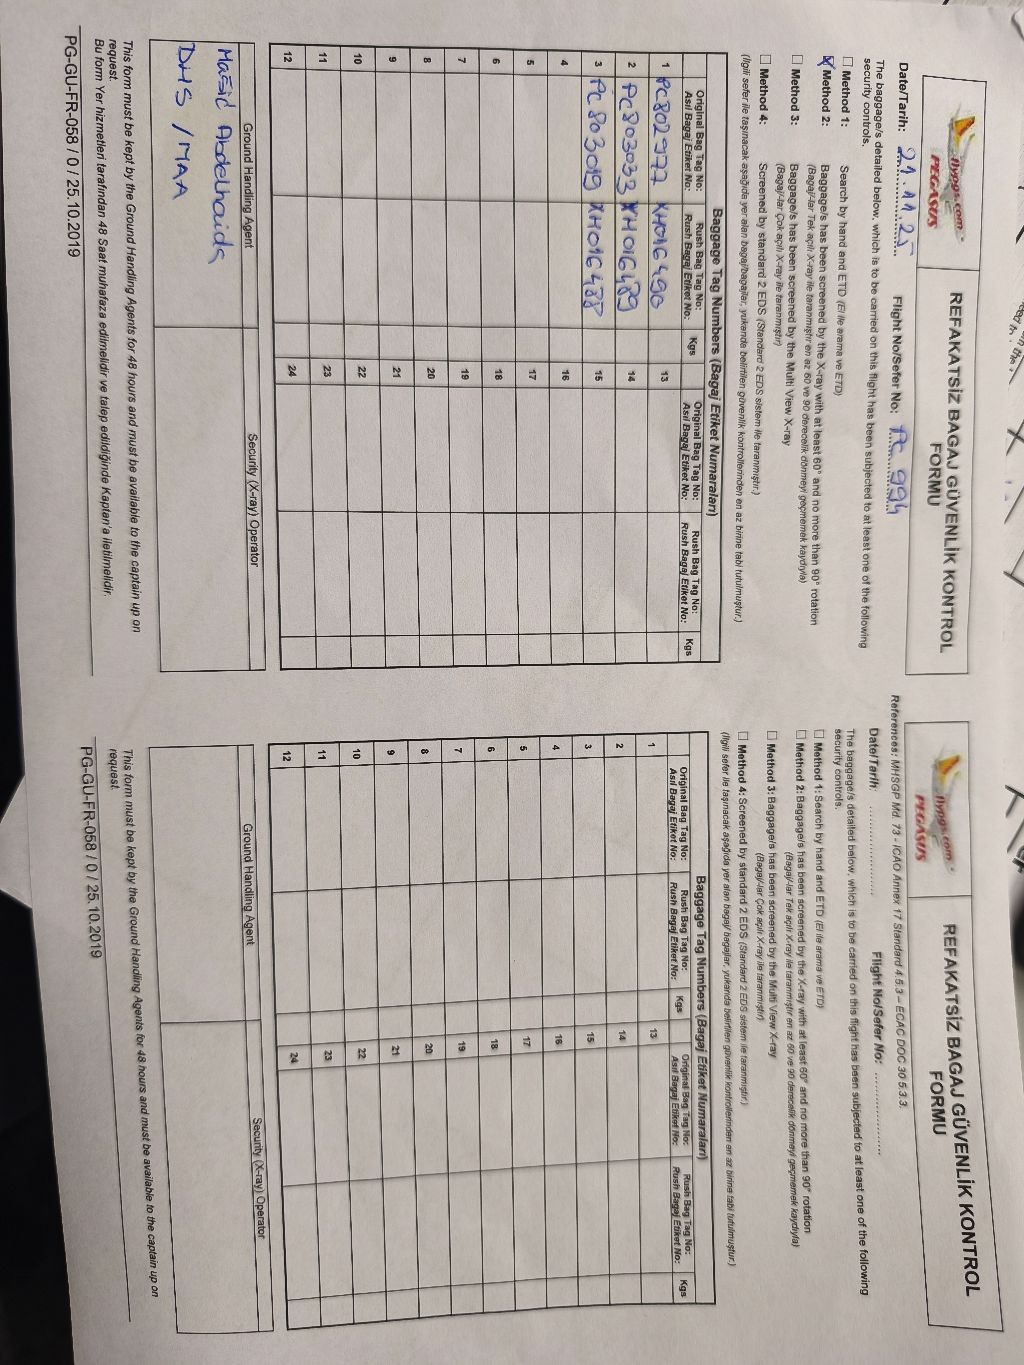 flypgs.com
PEGASUS
REFAKATSİZ BAGAJ GÜVENLİK KONTROL
FORMU
Date/Tarih: 21.11.25 Flight No/Sefer No: PC 994
The baggage/s detailed below, which is to be carried on this flight has been subjected to at least one of the following
security controls.
☐ Method 1: Search by hand and ETD (El ile arama ve ETD)
☒ Method 2: Baggage/s has been screened by the X-ray with at least 60° and no more than 90° rotation
(Bagaj/-lar Tek açılı X-ray ile taranmıştır en az 60 ve 90 derecelik dönmeyi geçmemek kaydıyla)
☐ Method 3: Baggage/s has been screened by the Multi View X-ray
(Bagaj/-lar Çok açılı X-ray ile taranmıştır)
☐ Method 4: Screened by standard 2 EDS (Standard 2 EDS sistem ile taranmıştır.)
(İlgili sefer ile taşınacak aşağıda yer alan bagaj/bagajlar, yukarıda belirtilen güvenlik kontrollerinden en az birine tabi tutulmuştur.)
Baggage Tag Numbers (Bagaj Etiket Numaraları)
Original Bag Tag No: Rush Bag Tag No: Kgs Original Bag Tag No: Rush Bag Tag No: Kgs
Asil Bagaj Etiket No: Rush Bagaj Etiket No: Asil Bagaj Etiket No: Rush Bagaj Etiket No:
1 PC802977 XH016490 13
2 PC803033 XH016489 14
3 PC803019 XH016488 15
4 16
5 17
6 18
7 19
8 20
9 21
10 22
11 23
12 24
Ground Handling Agent Security (X-ray) Operator
DHS / MAA
This form must be kept by the Ground Handling Agents for 48 hours and must be available to the captain up on
request.
Bu form Yer hizmetleri tarafından 48 Saat muhafaza edilmelidir ve talep edildiğinde Kaptan'a iletilmelidir.
PG-GU-FR-058 / 0 / 25.10.2019
References: MHSGP Md. 73 - ICAO Annex 17 Standard 4.5.3 – ECAC DOC 30 5.3.3.
flypgs.com
PEGASUS
REFAKATSİZ BAGAJ GÜVENLİK KONTROL
FORMU
Date/Tarih: .................. Flight No/Sefer No: ..................
The baggage/s detailed below, which is to be carried on this flight has been subjected to at least one of the following
security controls.
☐ Method 1: Search by hand and ETD (El ile arama ve ETD)
☐ Method 2: Baggage/s has been screened by the X-ray with at least 60° and no more than 90° rotation
(Bagaj/-lar Tek açılı X-ray ile taranmıştır en az 60 ve 90 derecelik dönmeyi geçmemek kaydıyla)
☐ Method 3: Baggage/s has been screened by the Multi View X-ray
(Bagaj/-lar Çok açılı X-ray ile taranmıştır)
☐ Method 4: Screened by standard 2 EDS (Standard 2 EDS sistem ile taranmıştır.)
(İlgili sefer ile taşınacak aşağıda yer alan bagaj/ bagajlar, yukarıda belirtilen güvenlik kontrollerinden en az birine tabi tutulmuştur.)
Baggage Tag Numbers (Bagaj Etiket Numaraları)
Original Bag Tag No: Rush Bag Tag No: Kgs Original Bag Tag No: Rush Bag Tag No: Kgs
Asil Bagaj Etiket No: Rush Bagaj Etiket No: Asil Bagaj Etiket No: Rush Bagaj Etiket No:
1 13
2 14
3 15
4 16
5 17
6 18
7 19
8 20
9 21
10 22
11 23
12 24
Ground Handling Agent Security (X-ray) Operator
This form must be kept by the Ground Handling Agents for 48 hours and must be available to the captain up on
request.
PG-GU-FR-058 / 0 / 25.10.2019